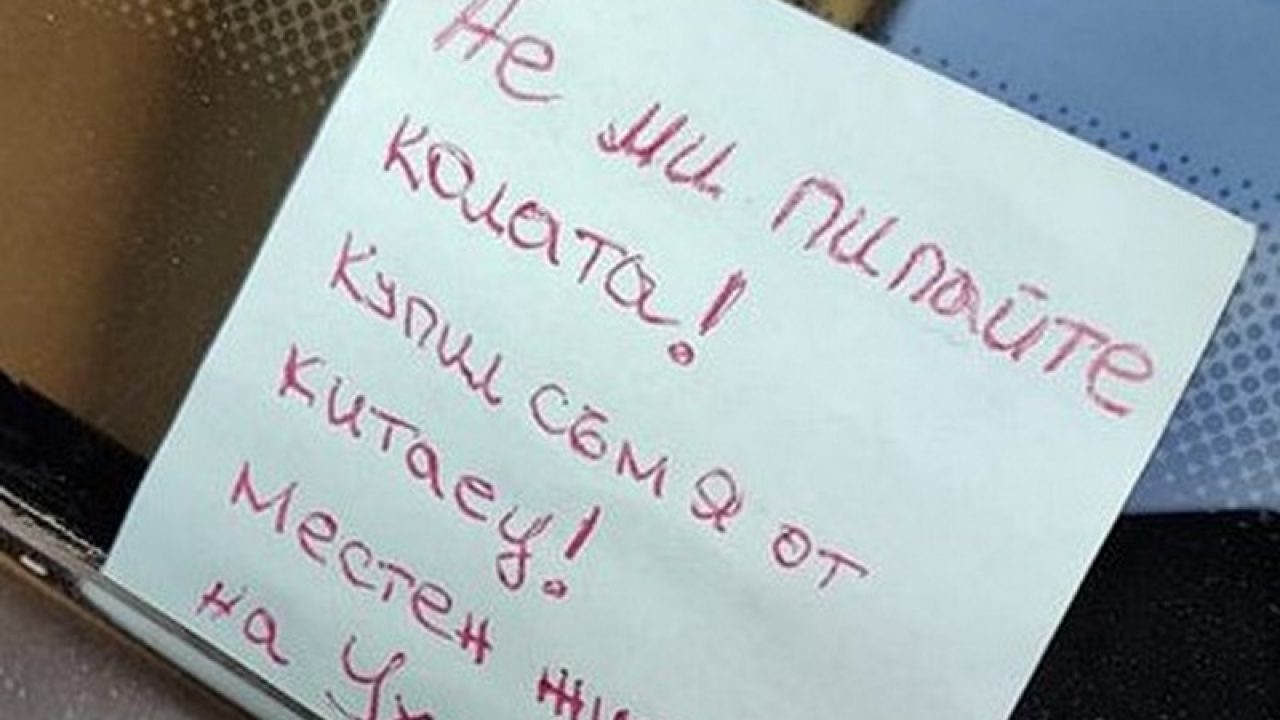 Не ми пипайте
колата!
Купил съм я от
Китаец!
Местен
на